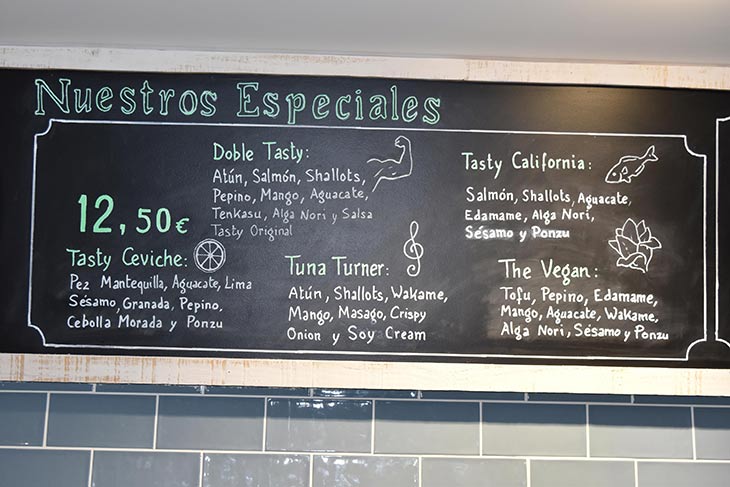 Nuestros Especiales
12,50€
Doble Tasty:
Atún, Salmón, Shallots,
Pepino, Mango, Aguacate,
Tenkasu, Alga Nori y Salsa
Tasty Original
Tasty California:
Salmón, Shallots, Aguacate,
Edamame, Alga Nori,
Sésamo y Ponzu
Tasty Ceviche:
Pez Mantequilla, Aguacate, Lima
Sésamo, Granada, Pepino,
Cebolla Morada y Ponzu
Tuna Turner:
Atún, Shallots, Wakame,
Mango, Masago, Crispy
Onion y Soy Cream
The Vegan:
Tofu, Pepino, Edamame,
Mango, Aguacate, Wakame,
Alga Nori, Sésamo y Ponzu